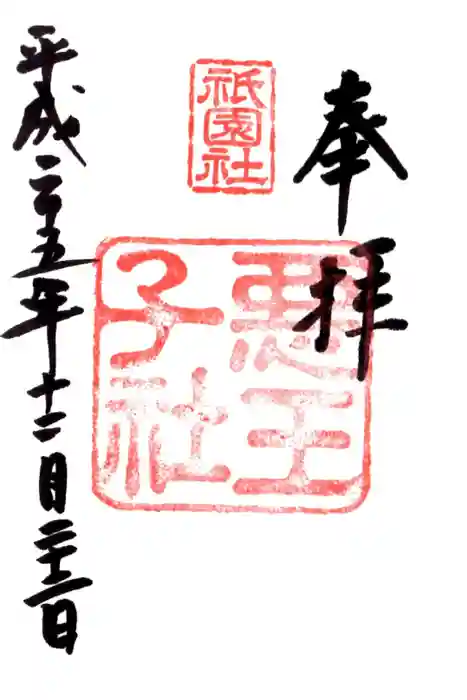 奉拝
祇園社
悪王
子社
平成二十五年十二月二十三日